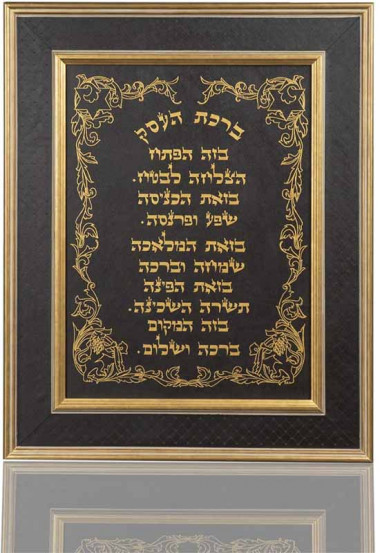 ברכת העסק
בזה הפתח
הצלחה לבטח.
בזאת הכניסה
שפע ופרנסה.
בזאת המלאכה
שמחה וברכה
בזאת הפינה
תשרה השכינה.
בזה המקום
ברכה ושלום.